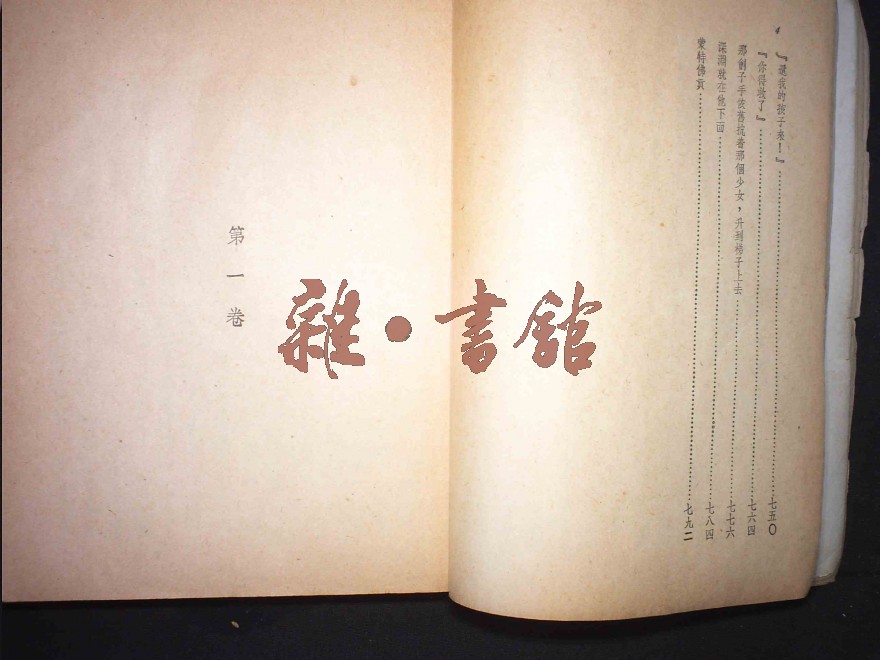 『還我的孩子來！』……七五〇
『你得救了』……七六四
那劊子手依舊抗着那個少女，升到梯子上去……七七六
深淵就在他下面……七八四
蒙特佛貢……七九二
第一卷
雜·書館